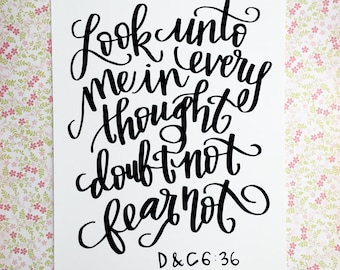 Look unto
me in every
thought
doubt not
fear not
D & C 6:36